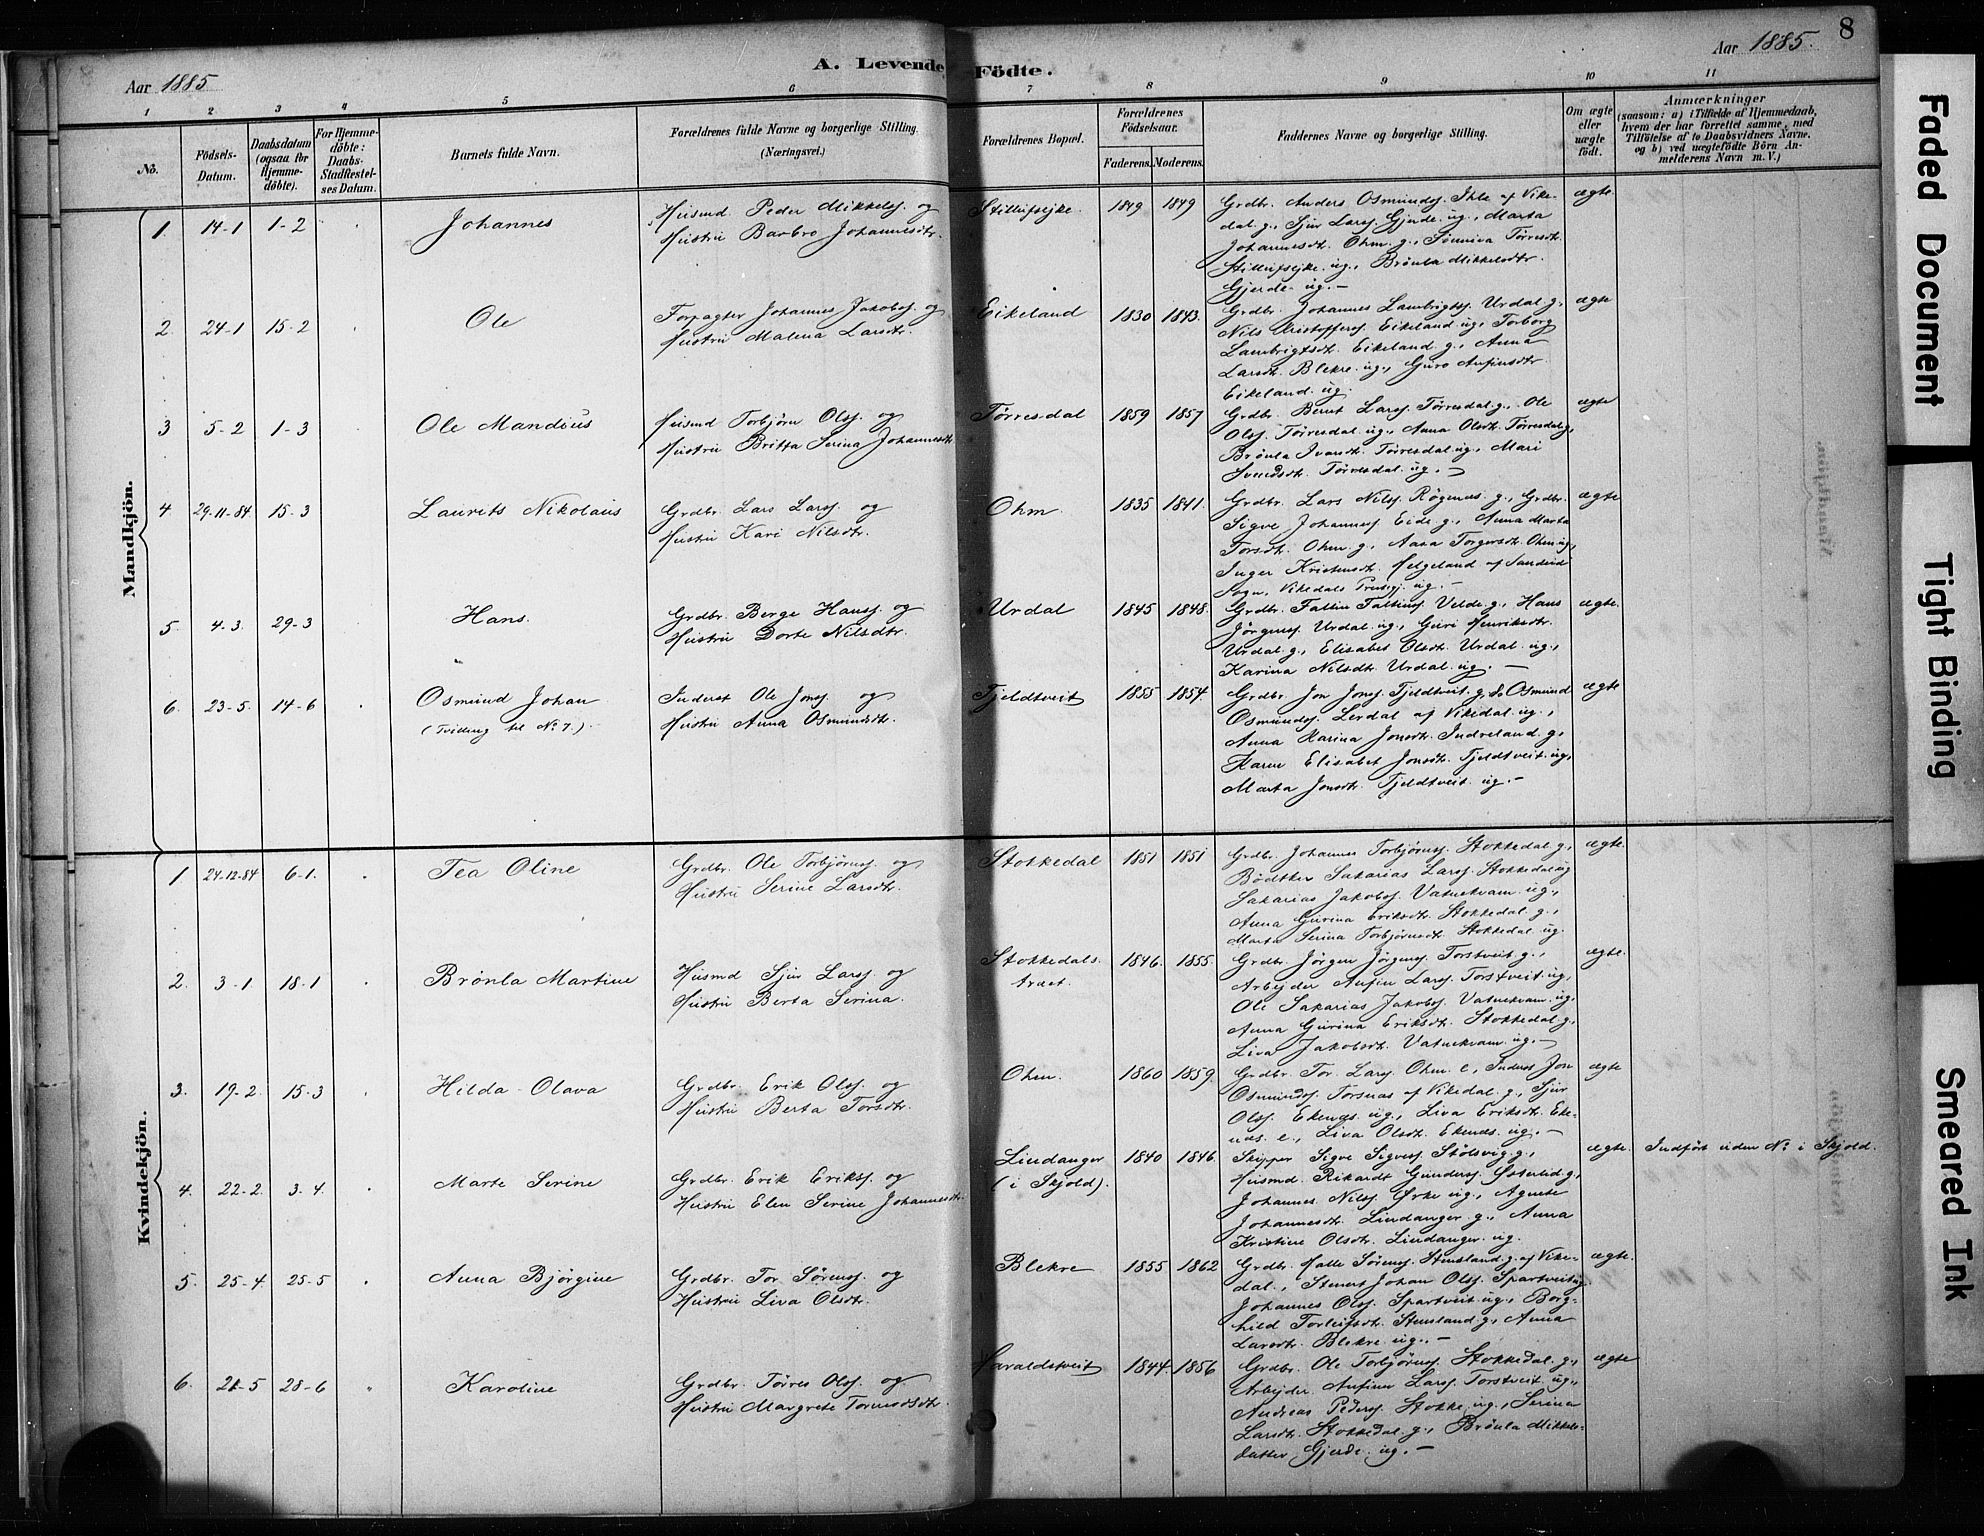 8
Aar 1885
A. Levende Födte.
Aar 1885.
1 2 3 4 5 6 7 8 9 10 11
No.
Födsels-Datum.
Daabsdatum (ogsaa for Hjemme-döbte).
For Hjemme-döbte: Daabs-Stadfestel-ses Datum.
Barnets fulde Navn.
Forældrenes fulde Navne og borgerlige Stilling.
(Næringsvei.)
Forældrenes Bopæl.
Forældrenes Födselsaar.
Faderens. Moderens.
Faddernes Navne og borgerlige Stilling.
Om ægte eller uægte født.
Anmærkninger
(saasom: a) i Tilfælde af Hjemmedaab,
hvem der har forrettet samme, med
Tilföielse af to Daabsvidners Navne,
og b) ved uægtefödte Börn An-
melderens Navn m. V.)
Mandkjön.
1. 14-1 1-2 Johannes
Husmd Peder Mikkelsj. og
Hustru Barbro Johannesdtr.
1849 1849
Grdbr. Anders Osmundsj. Ihle af Vike-
dal g., Sjur Larsj. Gjerde ug., Marta
Johannesdt. Ohm g., Sønniva Tørresdt.
ug., Brønla Mikkelsdtr.
Gjerde ug. —
ægte.
2 24-1 15-2 Ole
Forpagter Johannes Jakobsj. og
Hustru Malena Larsdtr.
Eikeland 1830 1843.
Grdbr. Johannes Lambrigtsj. Urdal g.,
Nils Kristoffersj. Eikeland ug., Torborg
Lambrigtsdt. Eikeland g., Anna
Larsdt. Blekre ug., Guro Anfinsdtr.
Eikeland ug.
ægte
3 5-2 1-3 Ole Mandius
Husmd Torbjørn Olsj. og
Hustru Britta Serina Johannesdt.
Tørresdal 1859 1857
Grdbr. Bernt Larsj. Tørresdal g., Ole
Olsj. Tørresdal ug., Anna Olsdt. Tørresdal g.,
Brønla Ivarsdt. Tørresdal ug., Mari
Svendsdt. Tørresdal ug. —
ægte
4 29-11-84 15-3 Laurits Nikolaus
Grdbr. Lars Larsj. og
Hustru Kari Nilsdtr.
Ohm. 1835 1841.
Grdbr. Lars Nilsj. Røgenæs g., Grdbr.
Sigve Johannesj. Eide g., Anna Marta
Torsdt. Ohm g., Aasa Torgersdt. Ohm ug.,
Inger Kristensdt. Helgeland af Sandeid
Sogn, Vikedals Prestgj. ug. —
ægte
5. 4-3. 29-3 Hans.
Grdbr. Berge Hansj. og
Hustru Dorte Nilsdtr.
Urdal 1845 1848.
Grdbr. Faltin Faltinsj. Velde g., Hans
Jörgensj. Urdal ug., Guri Henriksdtr.
Urdal g., Elisabet Olsdt. Urdal ug.,
Karina Nilsdt. Urdal ug. —
ægte.
6. 23-5. 14-6 Osmund Johan
(Tvilling til No 7.)
Inderst Ole Jonsj. og
Hustru Anna Osmundsdtr.
Tjeldtveit 1855 1854.
Grdbr. Jon Jonsj. Tjeldtveit g., do Osmund
Osmundsj. Lerdal af Vikedal ug.,
Anna Karina Jonsdt. Indreland g.,
Karen Elisabet Jonsdt. Tjeldtveit ug.,
Marta Jonsdt. Tjeldtveit ug. —
ægte
Kvindekjön.
1 24-12-84 6-1. Tea Oline
Grdbr. Ole Torbjørnsj. og
Hustru Serine Larsdtr.
Stokkedal 1851 1851
Grdbr. Johannes Torbjørnsj. Stokkedal g.,
Bödtker Sakarias Larsj. Stokkedal ug
Sakarias Jakobsj. Vatnekvam ug.,
Anna Gurina Eriksdt. Stokkedal g.,
Marta Serina Torbjørnsdt. Stokkedal ug.
ægte.
2. 3-1 18-1 Brønla Martine
Husmd Sjur Larsj. og
Hustru Berta Serina.
Stokkedals
træet. 1846. 1855.
Grdbr. Jörgen Jörgensj. Torstveit g.,
Arbejder Anfin Larsj. Torstveit ug.,
Ole Sakarias Jakobsj. Vatnekvam ug.,
Anna Gurina Eriksdt. Stokkedal g.,
Liva Jakobsdt. Vatnekvam ug. —
ægte.
3. 19-2. 15-3 Hilda Olava
Grdbr. Erik Olsj. og
Hustru Berta Torsdtr.
Ohm. 1860 1859.
Grdbr. Tor Larsj. Ohm e., Inderst Jon
Osmundsj. Torsnæs af Vikedal g., Sjur
Olsj. Ekenæs ug., Liva Eriksdt. Eke-
næs e., Liva Olsdt. Ekenæs ug. —
ægte
4. 22-2. 3-4. Marte Serine
Grdbr. Erik Eriksj. og
Hustru Elen Serine Johannesdtr.
Lindanger
(i Skjold). 1840 1846.
Skipper Sigve Sigvesj. Stölsvig g.,
Husmd. Rikardt Gundersj. g.,
Johannes Nilsj. Ørke ug., Agnete
Johannesdt. Lindanger g., Anna
Kristine Olsdt. Lindanger ug.
ægte. Indført uden No i Skjold.
5. 25-4. 25-5 Anna Bjørgine
Grdbr. Tor Sörensj. og
Hustru Liva Olsdtr.
Blekre 1855 1862
Grdbr. Halle Sörensj. Stensland g. af Vike-
dal, Johan Olsj. Spartveit ug.
Johannes Olsj. Spartveit ug., Borg-
hild Torleifsdt. Stensland g., Anna
Larsdt. Blekre ug. —
ægte.
6. 21-5 28-6 Karoline
Grdbr. Tørres Olsj. og
Hustru Margrete
Haraldstveit 1844. 1856
Grdbr. Ole Torbjørnsj. Stokkedal g.,
Arbejder Anfinn Larsj. Torstveit ug.,
Andreas Pedersj. Stokke ug., Serina
Larsdt. Stokkedal g., Brønla Mikkels-
datter Gjerde ug. —
ægte
Faded Document
Tight Binding
Smeared Ink